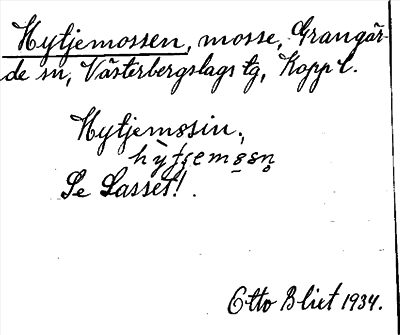 Hytjemossen, mosse, Grangär-
de sn, Västerbergslags tg, Kopp l.
Hytjemossin.,
Se Lasses! .
Otto Blixt 1934.